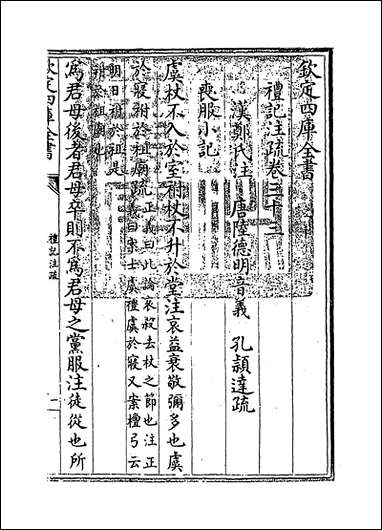 欽定四庫全書
禮記注疏卷三十三
漢鄭氏注 唐陸德明音義 孔穎達疏
喪服小記
虞杖不入於室祔杖不升於堂注哀益衰敬彌多也虞
於寢祔於祖廟疏
正義曰此論哀殺去杖之節也注正
義曰案士虞禮虞於寢又案檀弓云
明日祔於祖是
祖廟也
為君母後者君母卒則不為君母之黨服注徒從也所
欽定四庫全書
禮記注疏
一